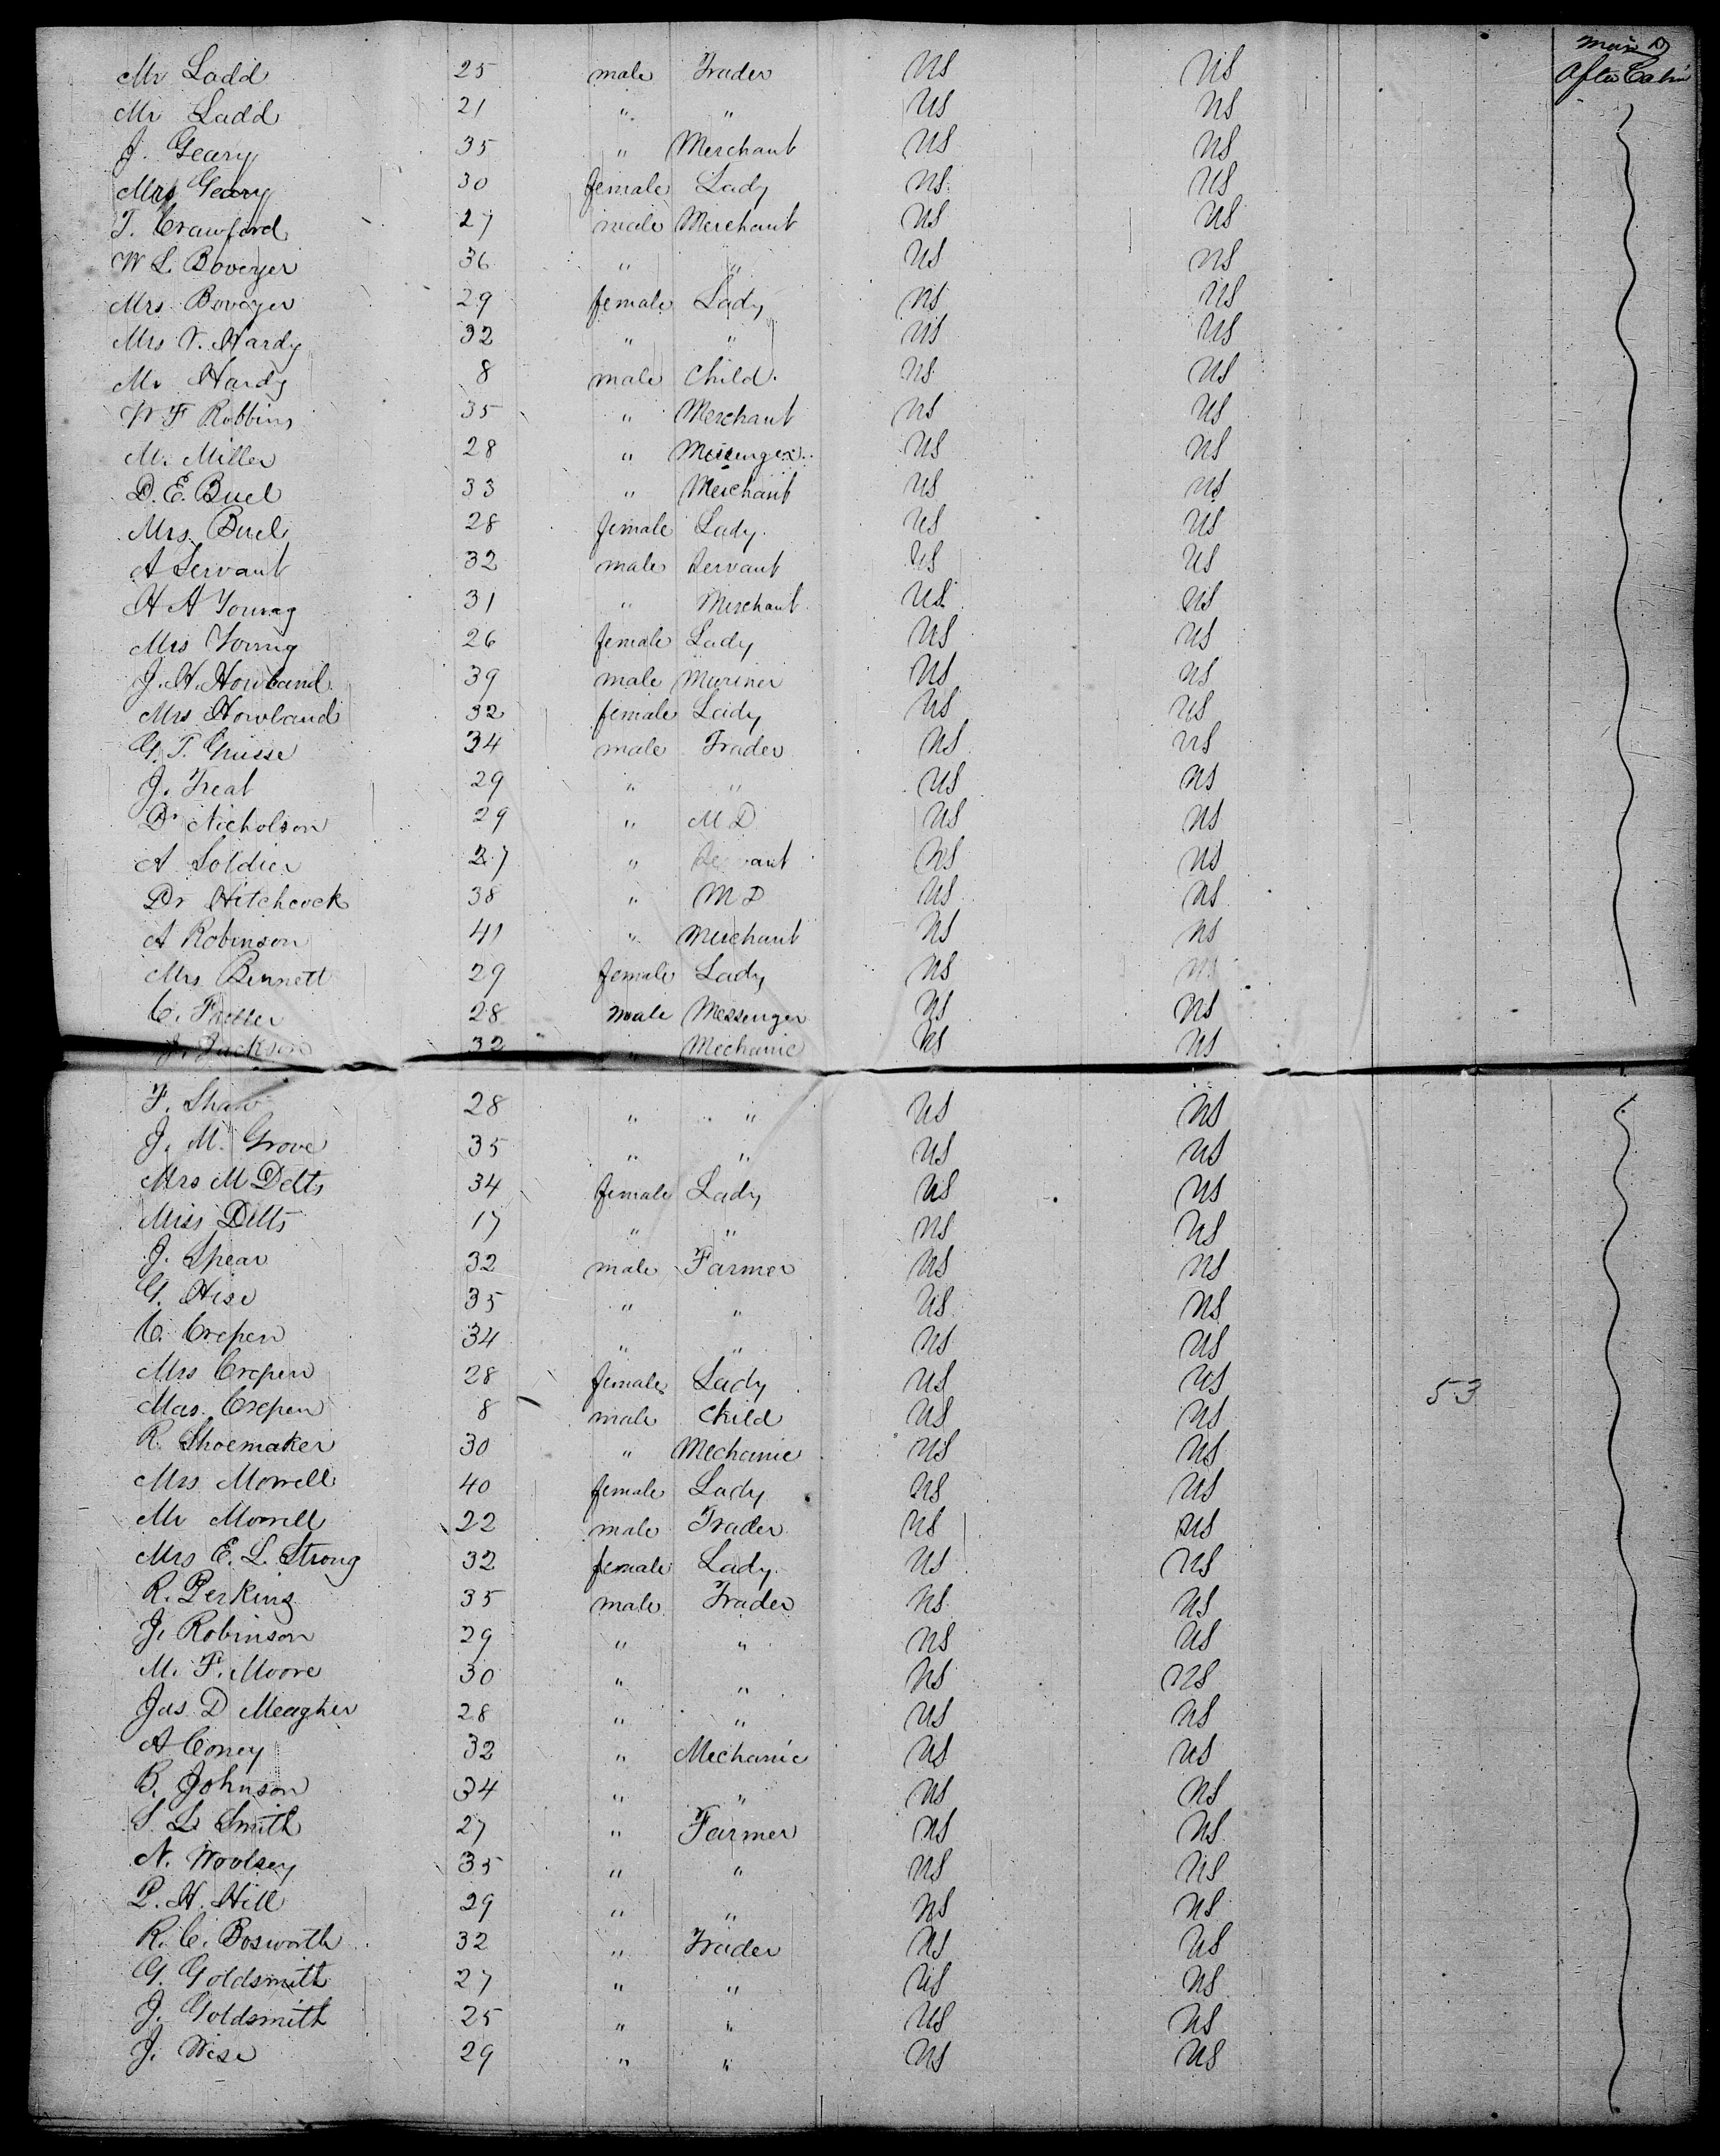 Main D
After Cabin
Mr Ladd 25 male Trader US US
Mr Ladd 21 " " US US
J. Geary 35 " Merchant US US
Mrs Geary 30 female Lady US US
T. Crawford 27 male Merchant US US
W L. Boveyer 36 " " US US
Mrs Boveyer 29 female Lady US US
Mrs V. Hardy 32 " " US US
Mr Hardy 8 male Child. US US
W F Robbins 35 " Merchant US US
M. Miller 28 " Messenger US US
D. E. Buel 33 " Merchant US US
Mrs. Buel 28 female Lady. US US
A Servant 32 male Servant US US
H A Young 31 " Merchant US US
Mrs Young 26 female Lady US US
J. H. Howland 39 male Mariner US US
Mrs Howland 32 female Lady US US
G. T. 34 male Trader US US
J. Treat 29 " " US US
Dr Nicholson 29 " M D US US
A Soldier 27 " Servant US US
Dr Hitchcock 38 " M D US US
A Robinson 41 " Merchant US US
Mrs Bennett 29 female Lady US US
C. 28 male Messenger US US
J. Jackson 32 " Mechanic US US
F. Shaw 28 " " US US
J. M. Grove 35 " " US US
Mrs M Delts 34 female Lady US US
Miss Delts 17 " " US US
J. Spear 32 male Farmer US US
G. Hise 35 " " US US
C. Crepen 34 " " US US
Mrs Crepen 28 female Lady US US
Mas. Crepen 8 male Child US US 53
R. Shoemaker 30 " Mechanic US US
Mrs Morrell 40 female Lady US US
Mr Morrell 22 male Trader US US
Mrs E. L. Strong 32 female Lady. US US
R. Perkins 35 male Trader US US
J. Robinson 29 " " US US
M. F. Moore 30 " " US US
Jas. D Meagher 28 " " US US
A Coney 32 " Mechanic US US
B. Johnson 34 " " US US
S. L. Smith 27 " Farmer US US
N. Woolsey 35 " " US US
P. H. Hill 29 " " US US
R. C. Bosworth 32 " Trader US US
G. Goldsmith 27 " " US US
J. Goldsmith 25 " " US US
J. Wise 29 " " US US